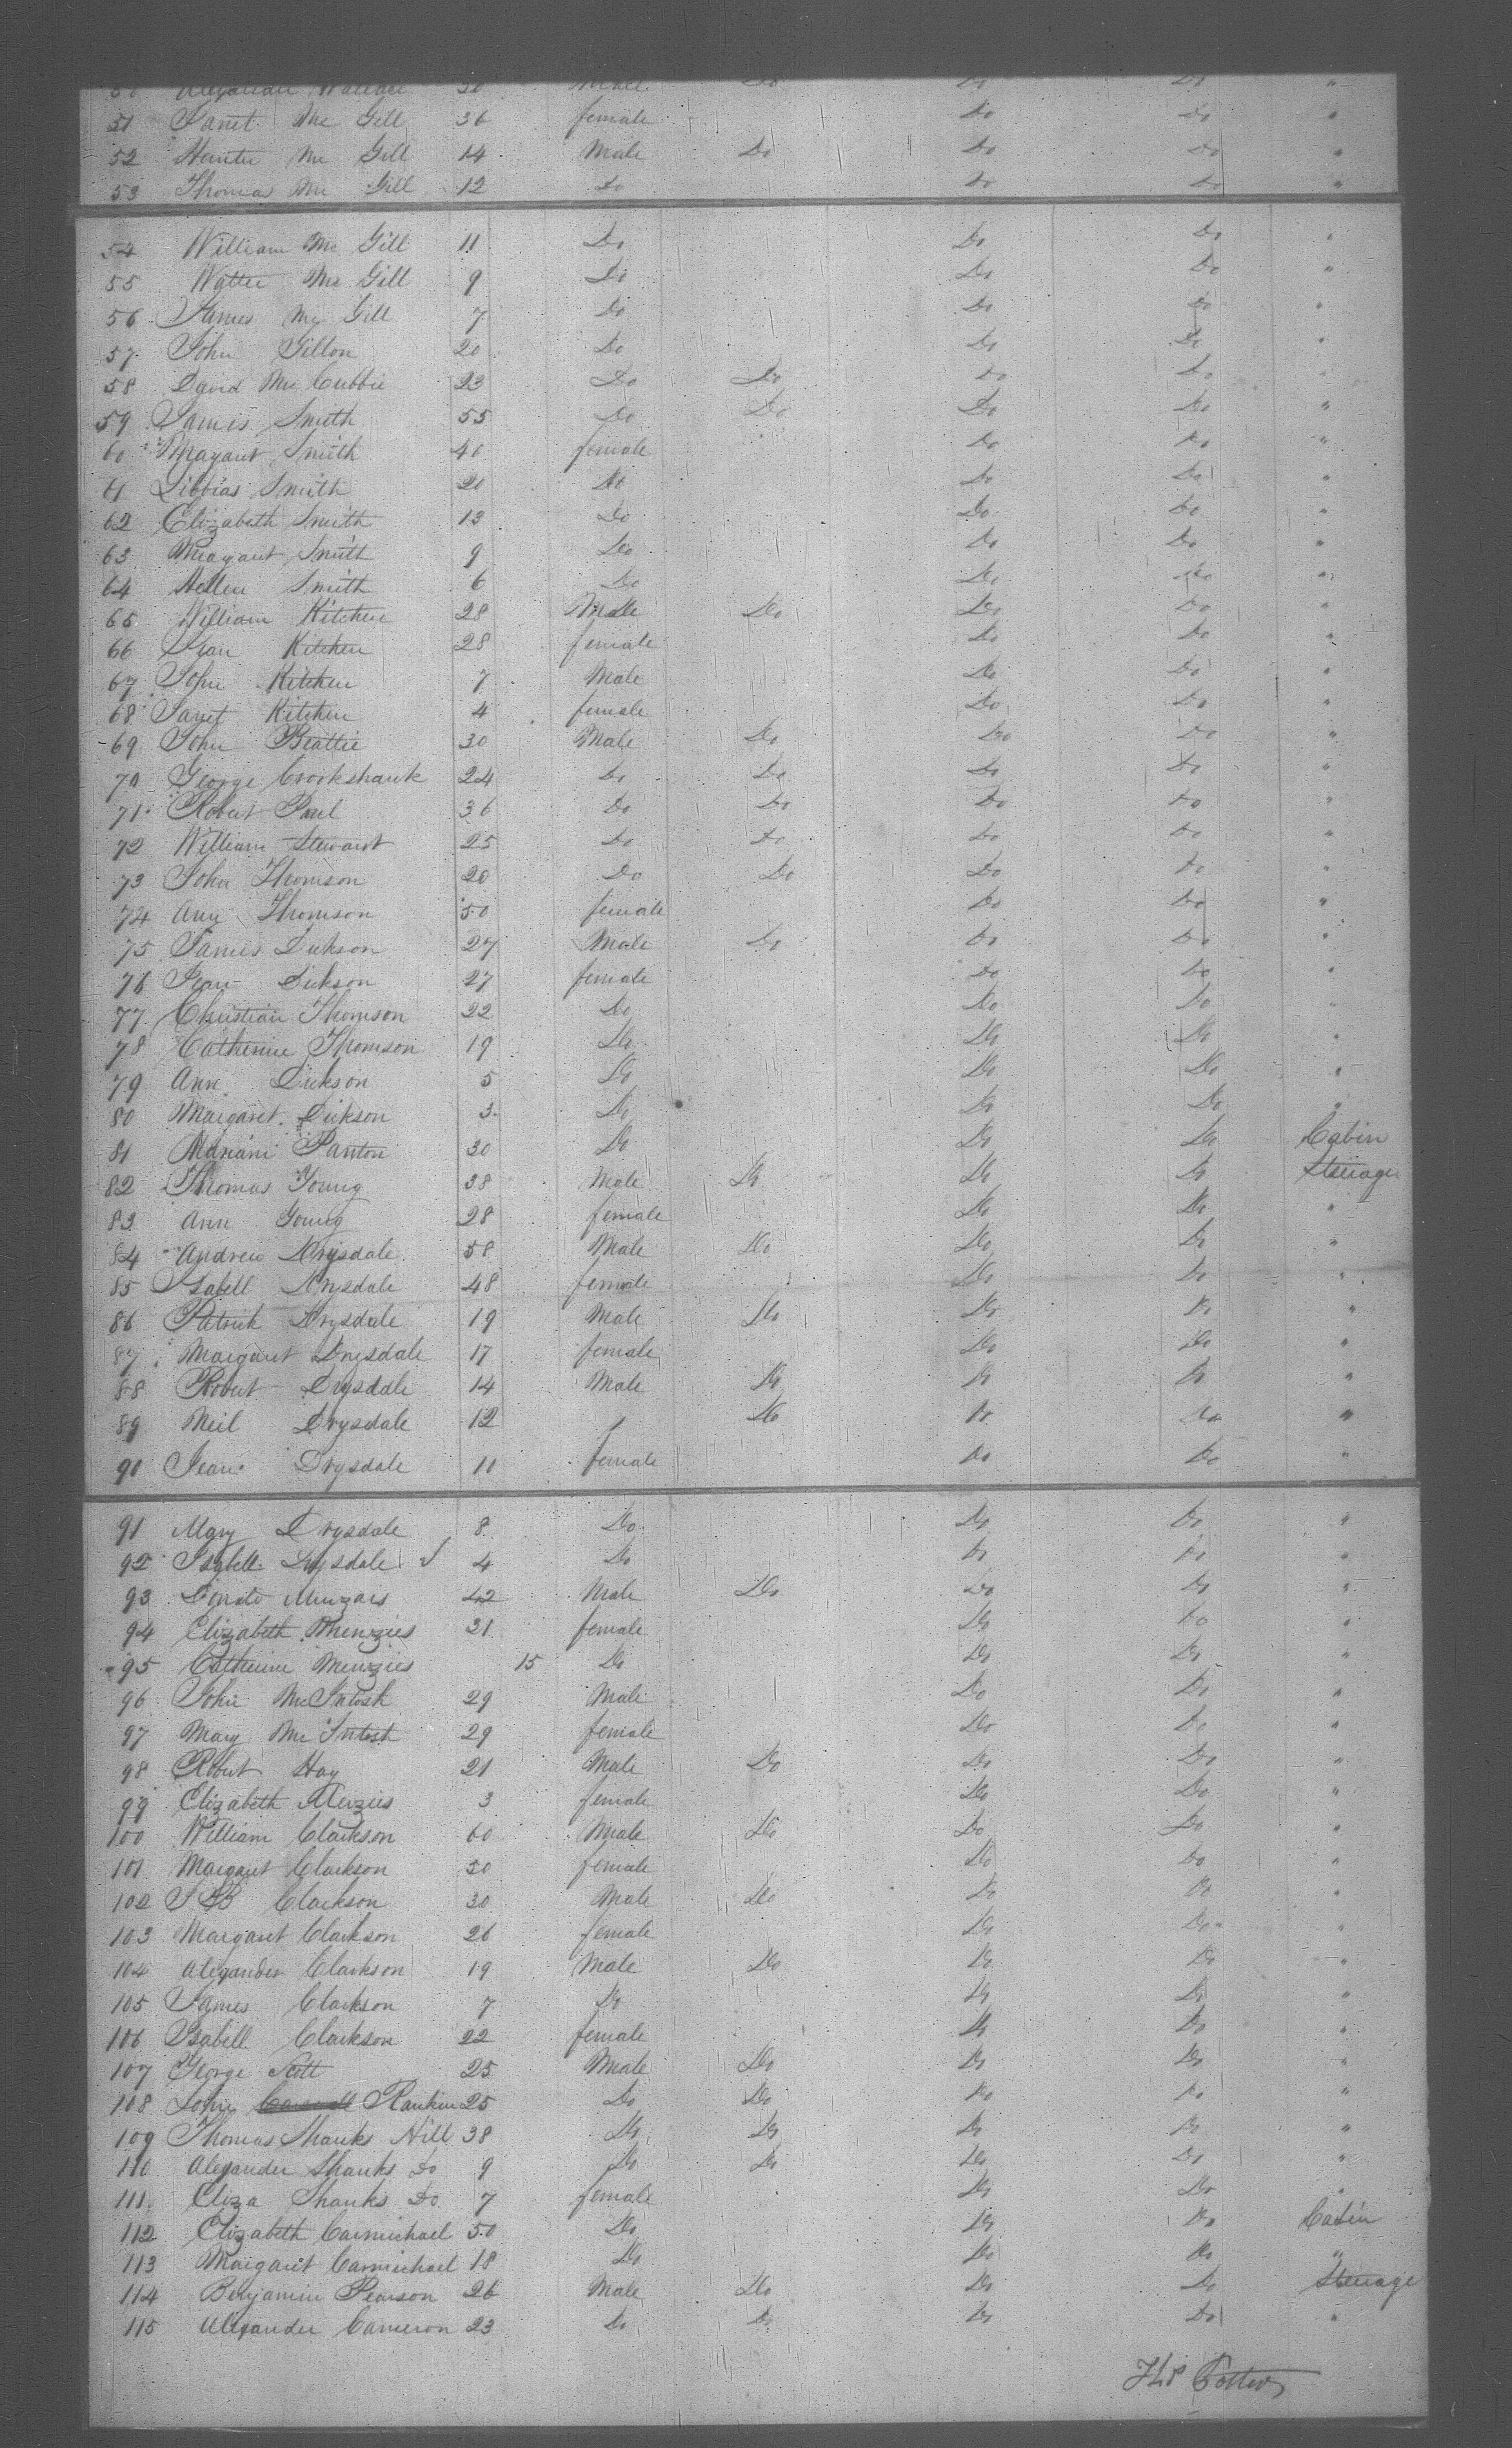 50 Wallace 30 Male Do Do Do "
51 Janet Mc Gill 36 female Do Do "
52 Hunter Mc Gill 14 Male Do Do Do "
53 Thomas Mc Gill 12 Do Do Do "
54 William Mc Gill 11 Do Do Do "
55 Walter Mc Gill 9 Do Do Do "
56 James Mc Gill 7 Do Do Do "
57 John Gillon 20 Do Do Do "
58 David Mc Cubbie 23 Do Do Do Do "
59 James Smith 55 Do Do Do Do "
60 Margaret Smith 40 female Do Do "
61 Smith 20 Do Do Do "
62 Elizabeth Smith 13 Do Do Do "
63 Margaret Smith 9 Do Do Do "
64 Hellen Smith 6 Do Do Do "
65 William Kitchen 28 Male Do Do Do "
66 Jean Kitchen 28 female Do Do "
67 John Kitchen 7 Male Do Do "
68 Janet Kitchen 4 female Do Do "
69 John Beattie 30 Male Do Do Do "
70 George Crookshank 24 Do Do Do Do "
71 Robert Paul 36 Do Do Do Do "
72 William Stewart 25 Do Do Do Do "
73 John Thomson 20 Do Do Do Do "
74 Ann Thomson 50 female Do Do "
75 James Dickson 27 Male Do Do Do "
76 Jean Dickson 27 female Do Do "
77 Christian Thomson 22 Do Do Do "
78 Catherine Thomson 19 Do Do Do "
79 Ann Dickson 5 Do Do Do "
80 Margaret Dickson 3 Do Do Do "
81 Mariann Panton 30 Do Do Do Cabin
82 Thomas Young 38 Male Do Do Do Steerage
83 Ann Young 28 female Do Do "
84 Andrew Drysdale 58 Male Do Do Do "
85 Isabell Drysdale 48 female Do Do "
86 Patrick Drysdale 19 Male Do Do Do "
87 Margaret Drysdale 17 female Do Do "
88 Robert Drysdale 14 Male Do Do Do "
89 Neil Drysdale 12 " Do Do Do "
90 Jean Drysdale 11 female Do Do "
91 Mary Drysdale 8 Do Do Do "
92 Isabell Drysdale 4 Do Do Do "
93 Menzais 42 Male Do Do Do "
94 Elizabeth Menzies 31 female Do Do "
95 Catherine Menzies 15 Do Do Do "
96 John McIntosh 29 Male Do Do "
97 Mary Mc Intosh 29 female Do Do "
98 Robert Hay 21 Male Do Do Do "
99 Elizabeth Menzies 3 female Do Do "
100 William Clarkson 60 Male Do Do Do "
101 Margaret Clarkson 50 female Do Do "
102 J B Clarkson 30 Male Do Do Do "
103 Margaret Clarkson 26 female Do Do "
104 Alexander Clarkson 19 Male Do Do Do "
105 James Clarkson 7 Do Do Do "
106 Isabell Clarkson 22 female Do Do "
107 George Scott 25 Male Do Do Do "
108 John Rankin 25 Do Do Do Do "
109 Thomas Shanks Hill 38 Do Do Do Do "
110 Alexander Shanks Do 9 Do Do Do Do "
111 Eliza Shanks Do 7 female Do Do "
112 Elizabeth Carmichael 50 Do Do Do Cabin
113 Margaret Carmichael 18 Do Do Do "
114 Benjamin Pearson 26 Male Do Do Do Steerage
115 Alexander Cameron 23 Do Do Do Do "